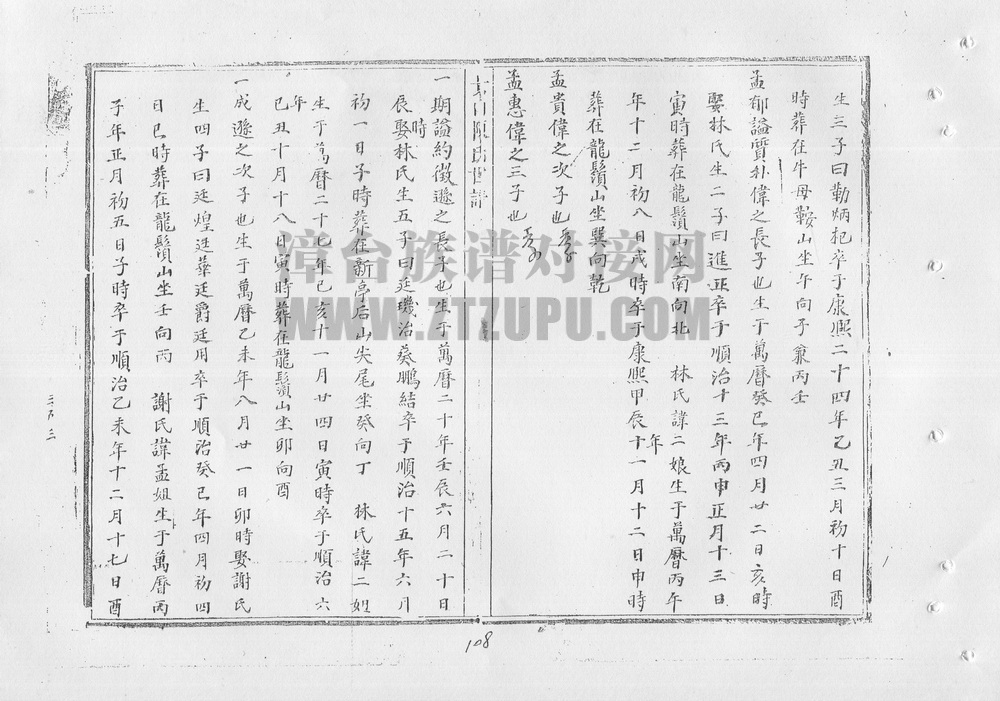 生三子曰勒炳杞卒于康熙二十四年乙丑三月初十日酉
時葬在牛母鞍山坐午向子兼丙壬
孟郁謚質朴偉之長子也生于萬曆癸巳年四月廿二日亥時
娶林氏生二子曰進正卒于順治十三年丙申正月十三日
寅時葬在龍鬚山坐南向北 林氏諱二娘生于萬曆丙午
年十二月初八日戌時卒于康熙甲辰年十一月十二日申時
葬在龍鬚山坐巽向乾
孟貴偉之次子也
孟惠偉之三子也
陳氏世譜
一期謚約徵遜之長子也生于萬曆二十年壬辰六月二十日
辰時娶林氏生五子曰廷璣治葵鵬結卒于順治十五年六月
初一日子時葬在新亭后山尖尾坐癸向丁 林氏諱二姐
生于萬曆二十七年己亥十一月廿四日寅時卒于順治六
年己丑十月十八日寅時葬在龍鬚山坐卯向酉
一成遜之次子也生于萬曆乙未年八月廿一日卯時娶謝氏
生四子曰廷煌廷葬廷爵廷用卒于順治癸巳年四月初四
日巳時葬在龍鬚山坐壬向丙 謝氏諱孟姐生于萬曆丙
子年正月初五日子時卒于順治乙未年十二月十七日酉
108
漳台族谱对接网
WWW.ZTZUPU.COM